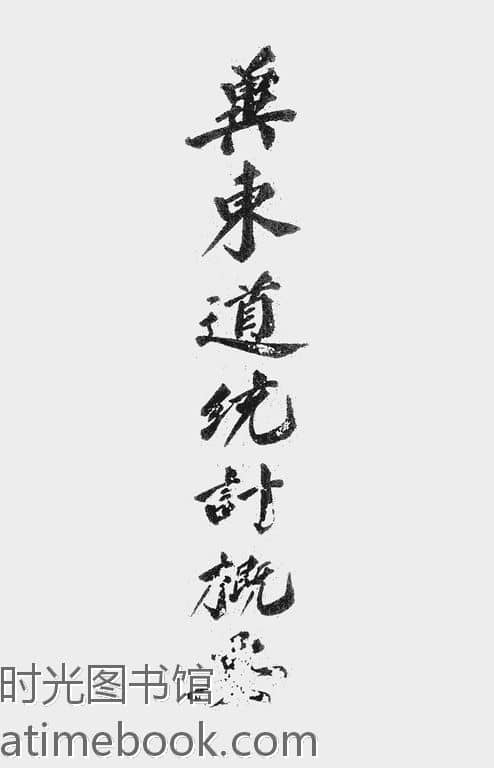 冀東道統計概
时光图书馆
atimebook.com